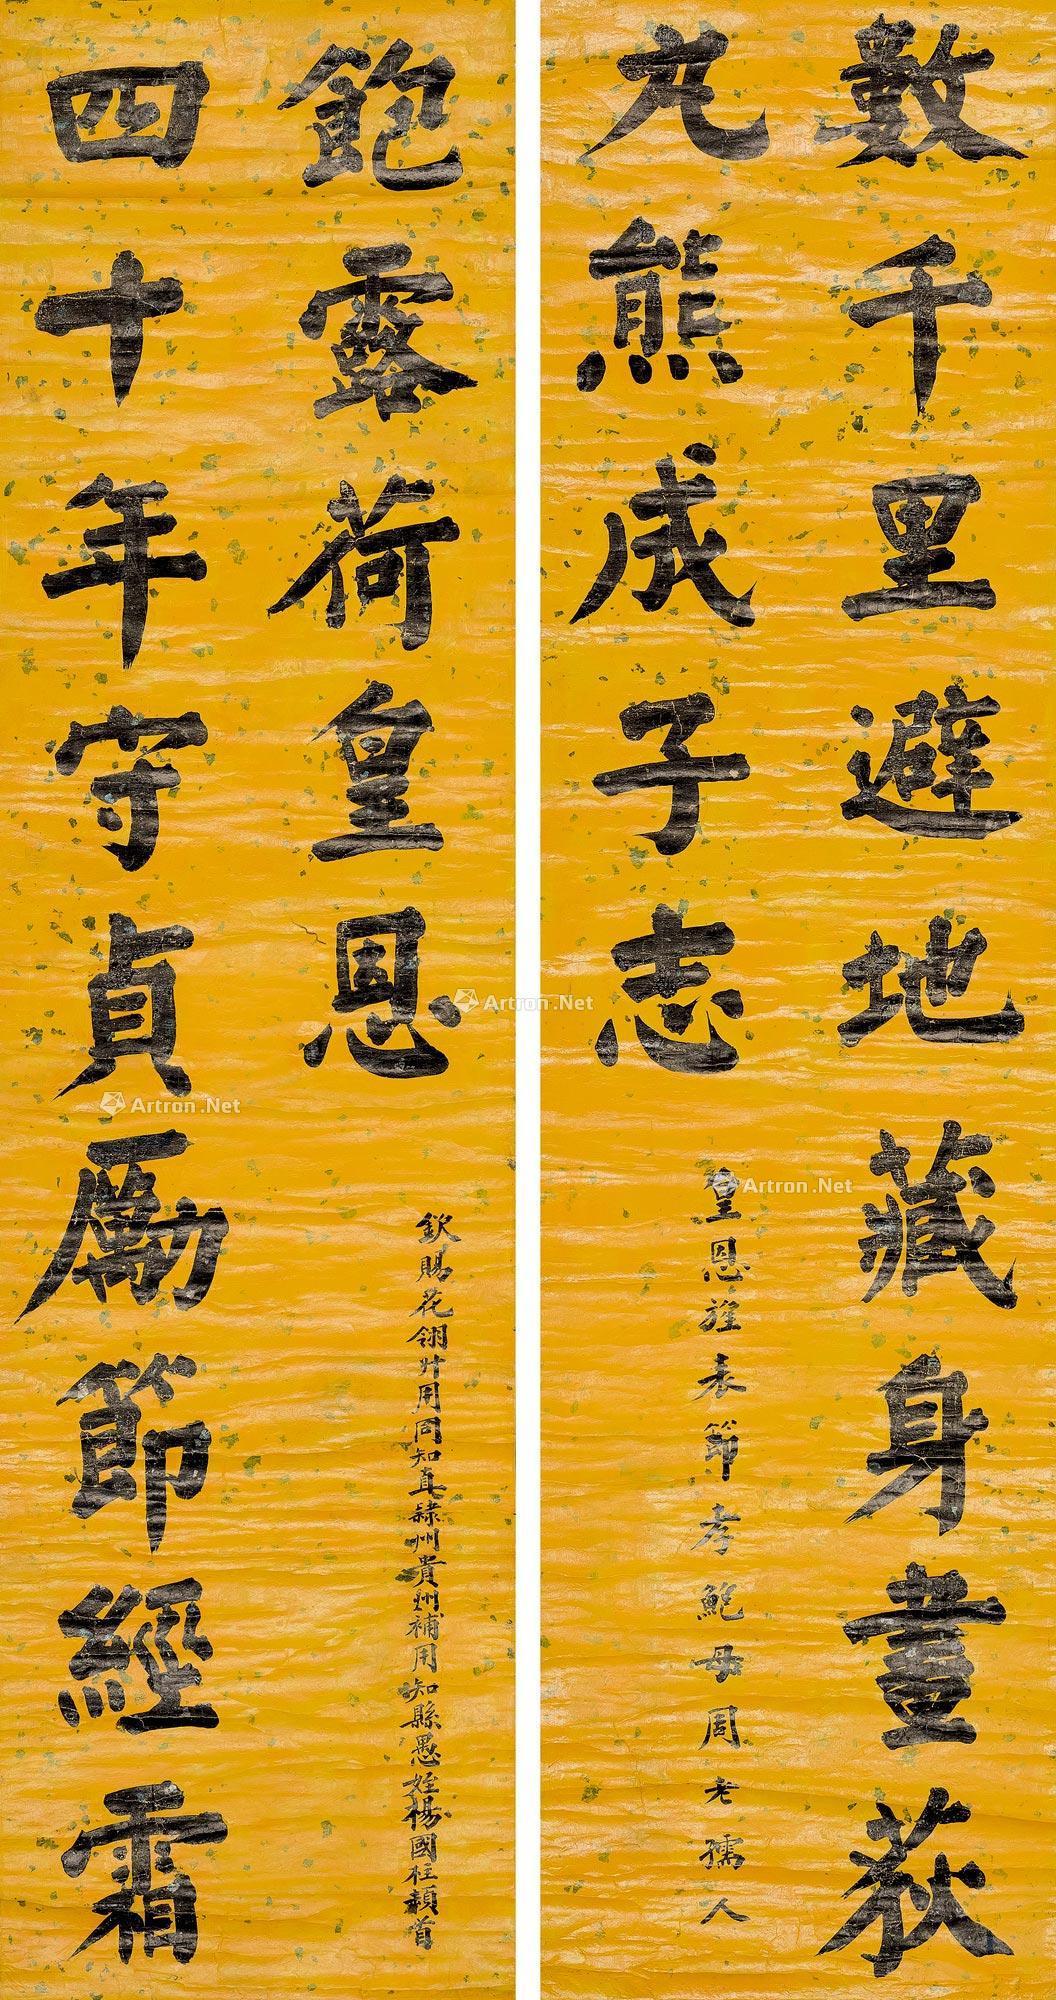 數千里避地藏身畫荻
丸熊成子志
皇恩旌表節孝鮑母周老孺人
四十年守貞勵節經霜
飽露荷皇恩
欽賜花翎升用同知直隸州貴州補用知縣愚姪楊國柱頓首
Artron.Net
Artron.Net
Artron.Net